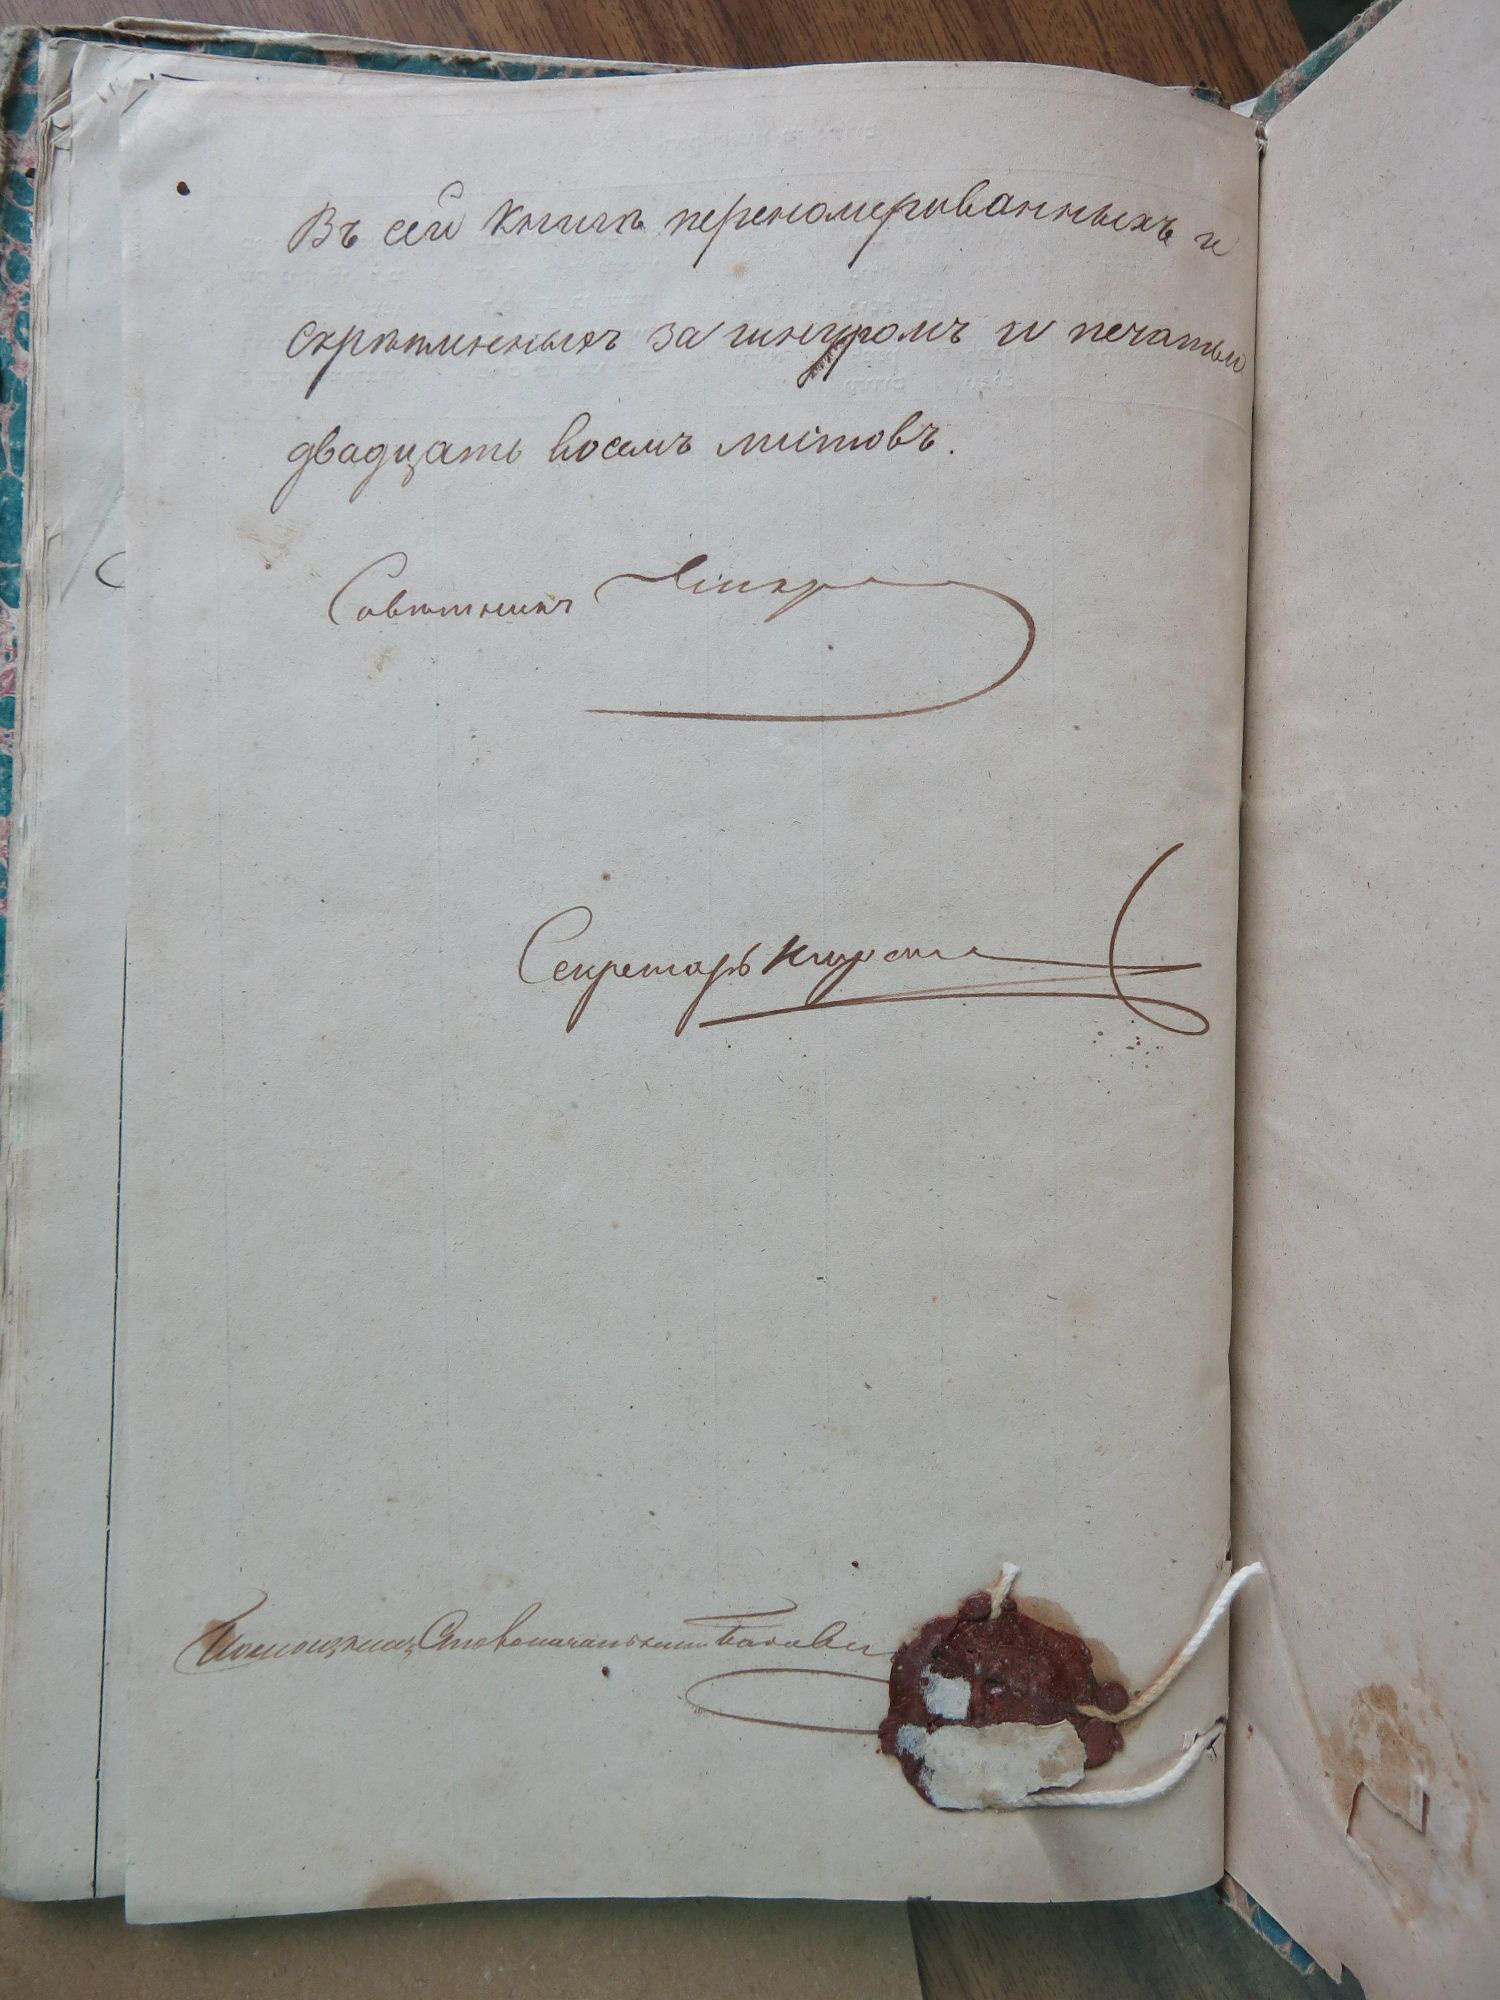 Въ сей книгѣ переномерованныхъ и
скрѣпленныхъ за шнуромъ и печатью
двадцать восемъ листовъ.
Совѣтникъ
Секретарь
Столоначальника